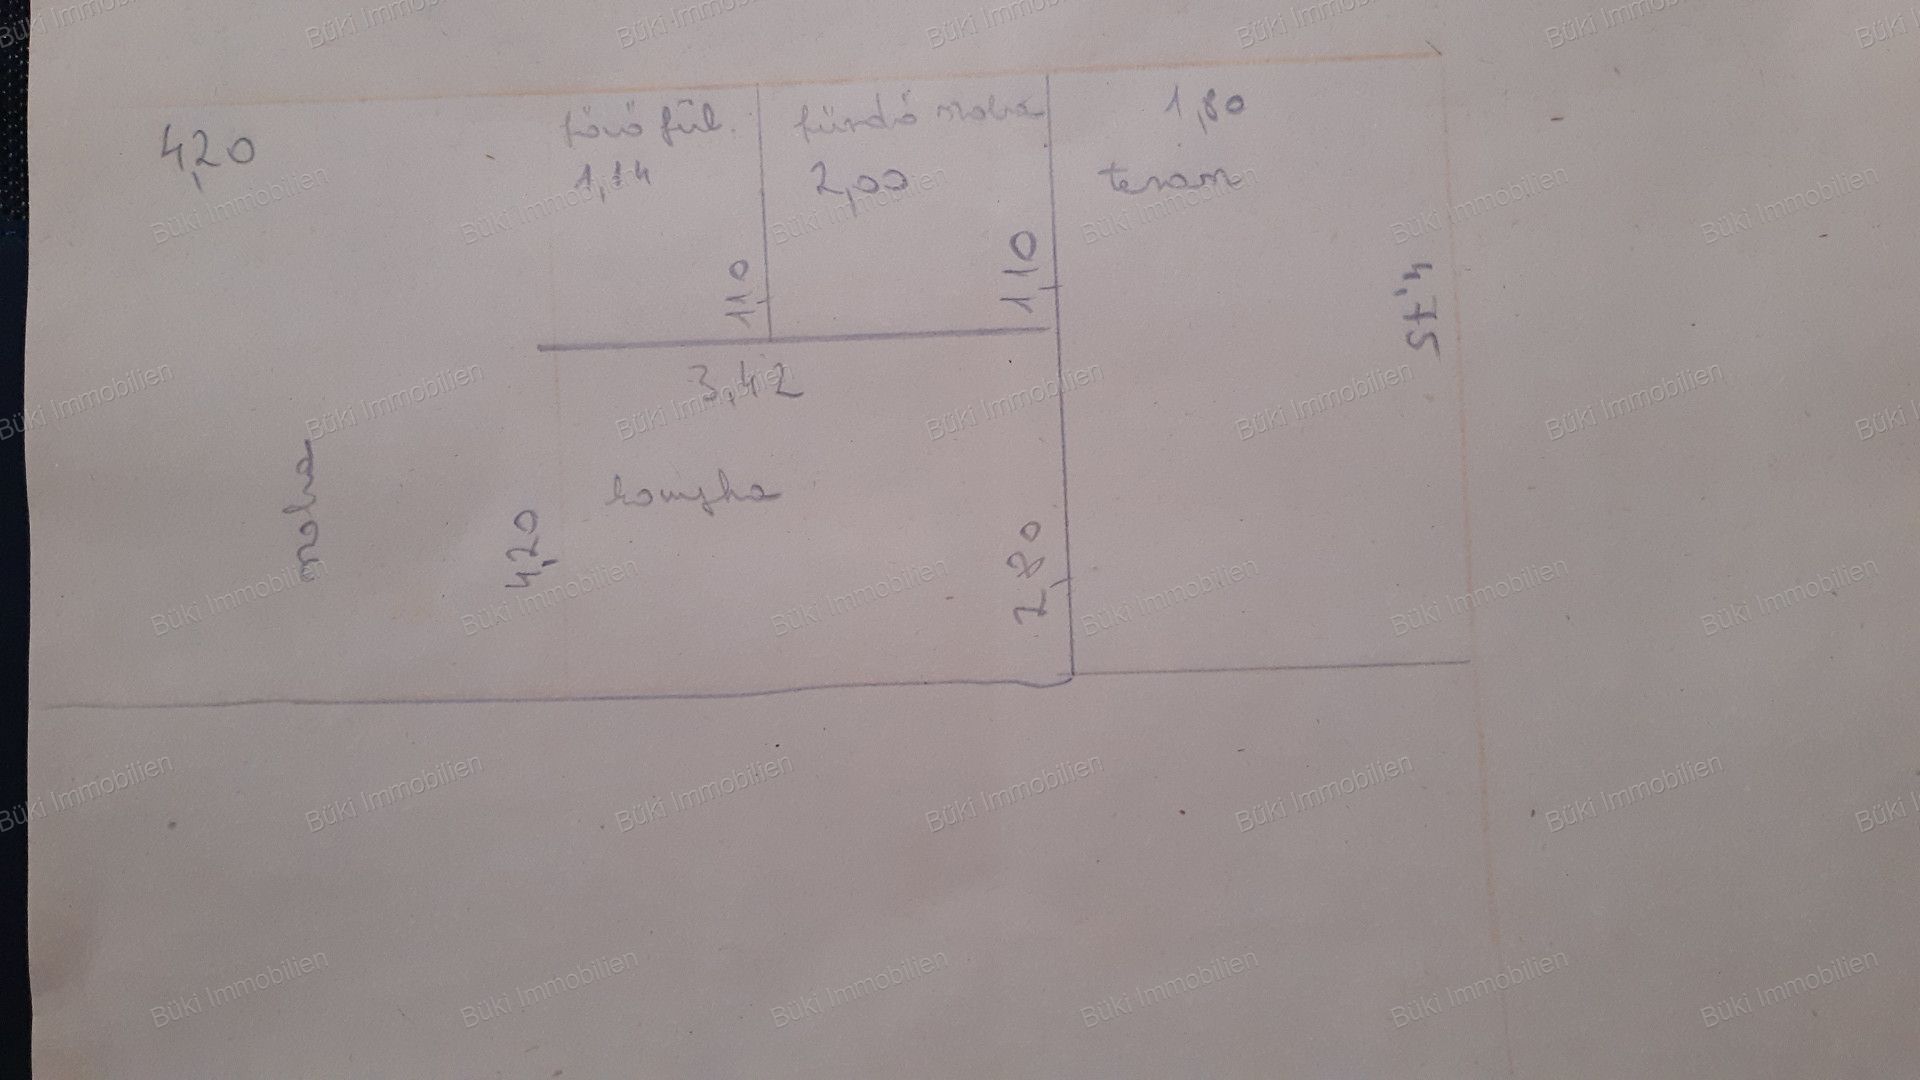 4,20
főző fül.
1,14
fürdő szoba
2,00
1,80
terasz
1,10
1,10
4,75
3,42
szoba
4,20
konyha
2,80
Büki Immobilien